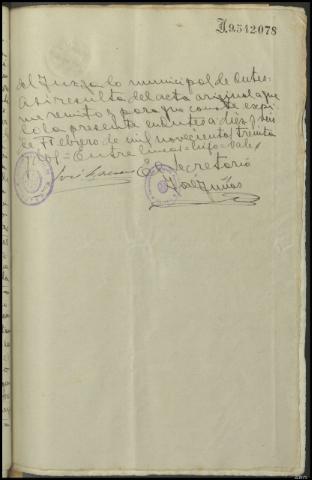 J.9.542.078
del Juzgado municipal de Outes.
Así resulta del acta original a que
me remito y para que conste expi
do la presente en Outes a diez y seis
de Febrero de mil novecientos treinta
Entre lineas = hijo = Vale
El Secretario
José
José Muñoz